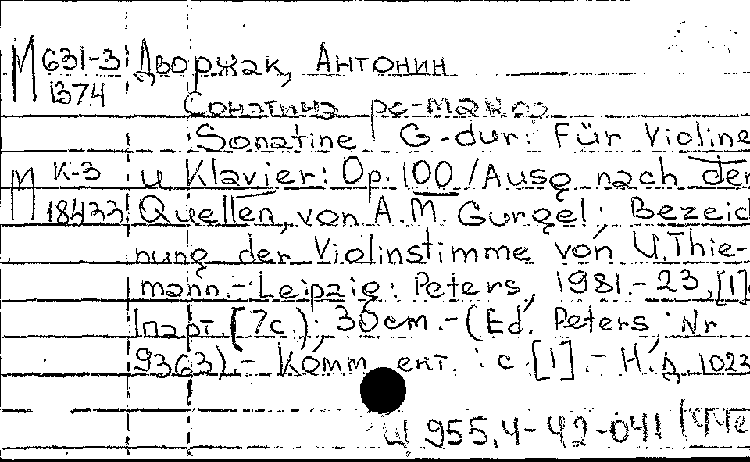 М 631-3 Дворжак, Антонин
1374
Сонатина ре-мажор
Sonatine G-dur: Für Violine
М К-3 u Klavier: Op. 100 / Ausg nach den
18433 Quellen, von A.M. Gurgel; Bezeich
nung der Violinstimme von U.Thie-
mann.- Leipzig: Peters, 1981.- 23,[1]
1парт. (7с.); 30cm.-(Ed. Peters; Nr
9363).- Коммент.: с.[1].- Н.д. 1023
Ш 955.4-42-041